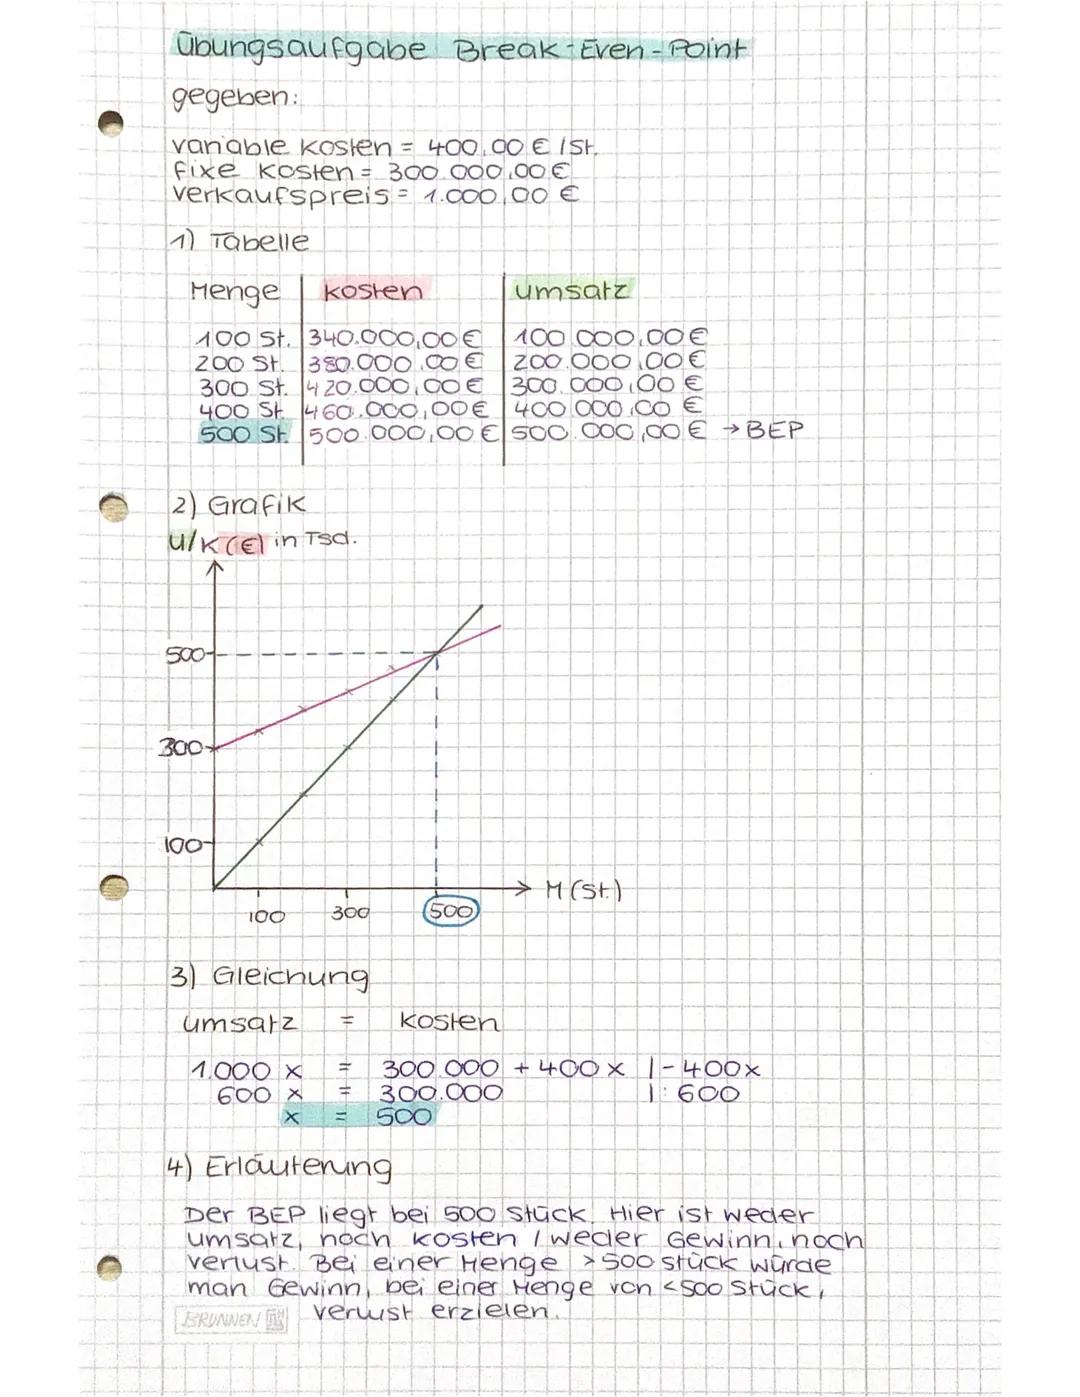 Übungsaufgabe Break-Even-Point
gegeben:
variable Kosten = 400,00 € / St.
fixe Kosten = 300.000,00 €
Verkaufspreis = 1.000,00 €
1) Tabelle
Menge Kosten Umsatz
100 St. 340.000,00 € 100.000,00 €
200 St. 380.000,00 € 200.000,00 €
300 St. 420.000,00 € 300.000,00 €
400 St. 460.000,00 € 400.000,00 €
500 St. 500.000,00 € 500.000,00 € → BEP
2) Grafik
U/K (€) in Tsd.
500
300
100
M (St.)
100 300 500
3) Gleichung
Umsatz = Kosten
1.000 x = 300.000 + 400 x | - 400x
600 x = 300.000 | : 600
x = 500
4) Erläuterung
Der BEP liegt bei 500 Stück. Hier ist weder
Umsatz, noch Kosten / weder Gewinn, noch
Verlust. Bei einer Menge > 500 Stück würde
man Gewinn, bei einer Menge von < 500 Stück,
Verlust erzielen.
BRUNNEN